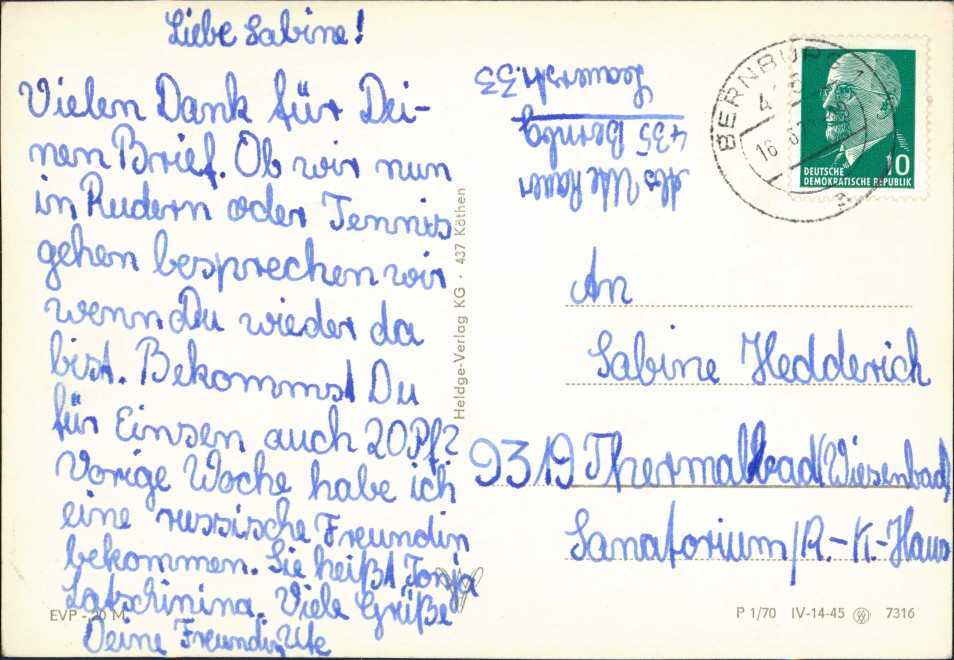 Liebe Sabine!
Vielen Dank für Dei-
nen Brief. Ob wir nun
in Rudern oder Tennis
gehen besprechen wir
wenn Du wieder da
bist. Bekommst Du
für Einsen auch 20Pf?
Vorige Woche habe ich
eine russische Freundin
bekommen. Sie heißt Tonja
Latschinina. Viele Grüße
Deine Freundin, Ute
EVP - 20 M
Heldge-Verlag KG · 437 Köthen
Abs Ute Hauer
435 Bernbg
33
BERNBURG 1
16
DEUTSCHE
DEMOKRATISCHE REPUBLIK
10
An
Sabine Hedderich
9319 Thermalbad (Wiesenbad)
Sanatorium/R.-K.-Haus
P 1/70 IV-14-45 7316